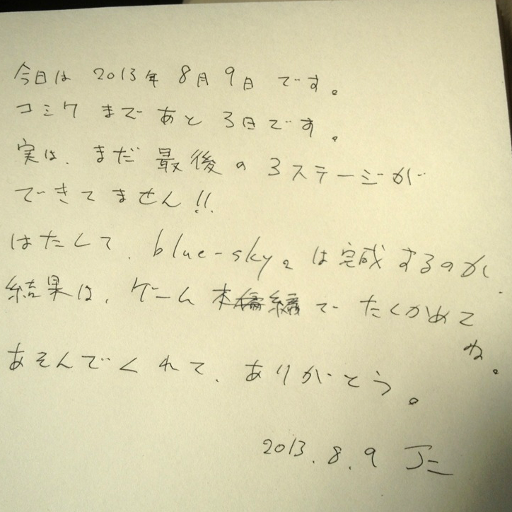 今日は 2013年 8月 9日 です。
コミケ まで あと 3日です。
実は、まだ 最後の 3ステージが
できてません!!
はたして、blue-sky。は完成するのか、
結果は、ゲーム 本編 で たしかめて
ね。
あそんでくれて、ありがとう。
2013.8.9